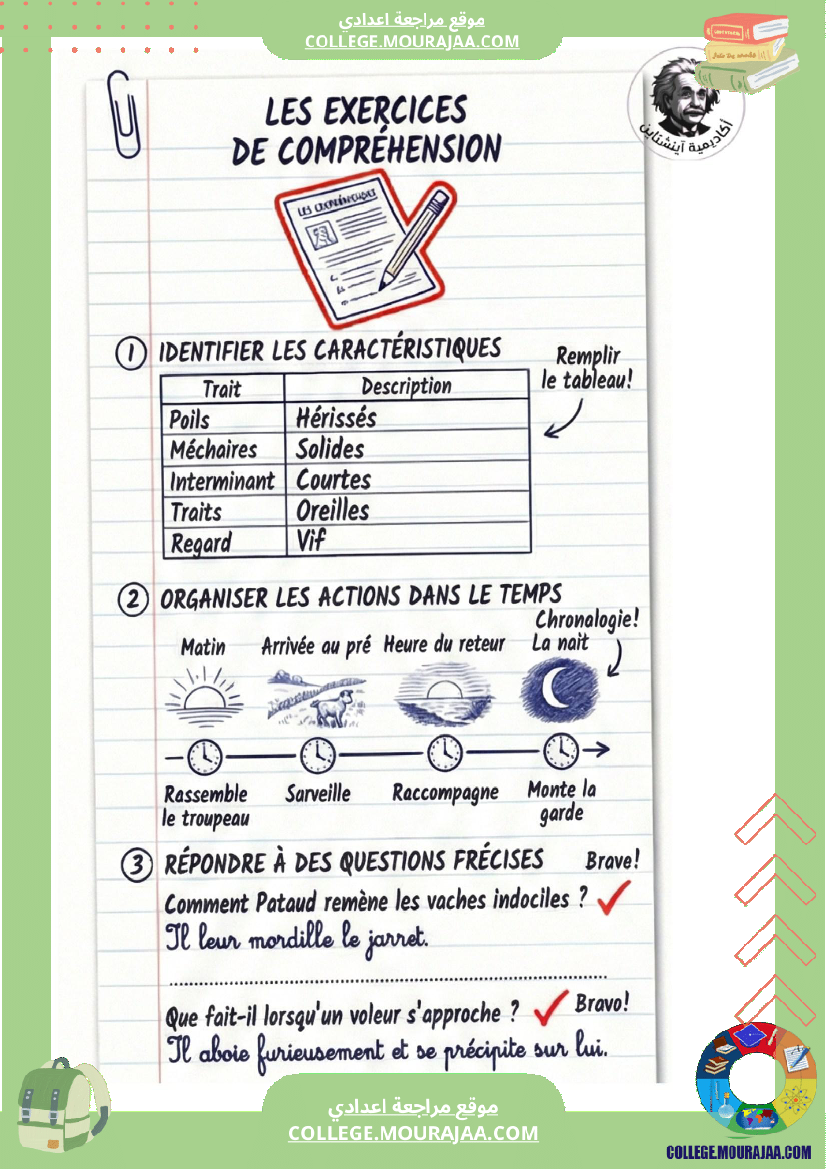 موقع مراجعة اعدادي
COLLEGE.MOURAJAA.COM
أكاديمية آينشتاين
LES EXERCICES
DE COMPRÉHENSION
1 IDENTIFIER LES CARACTÉRISTIQUES
Remplir
le tableau!
Trait Description
Poils Hérissés
Méchaires Solides
Interminant Courtes
Traits Oreilles
Regard Vif
2 ORGANISER LES ACTIONS DANS LE TEMPS
Chronalogie!
Matin Arrivée au pré Heure du reteur La nait
Rassemble
le troupeau
Sarveille
Raccompagne
Monte la
garde
3 RÉPONDRE À DES QUESTIONS FRÉCISES Brave!
Comment Pataud remène les vaches indociles ?
Il leur mordille le jarret.
Que fait-il lorsqu'un voleur s'approche ? Bravo!
Il aboie furieusement et se précipite sur lui.
موقع مراجعة اعدادي
COLLEGE.MOURAJAA.COM
COLLEGE.MOURAJAA.COM